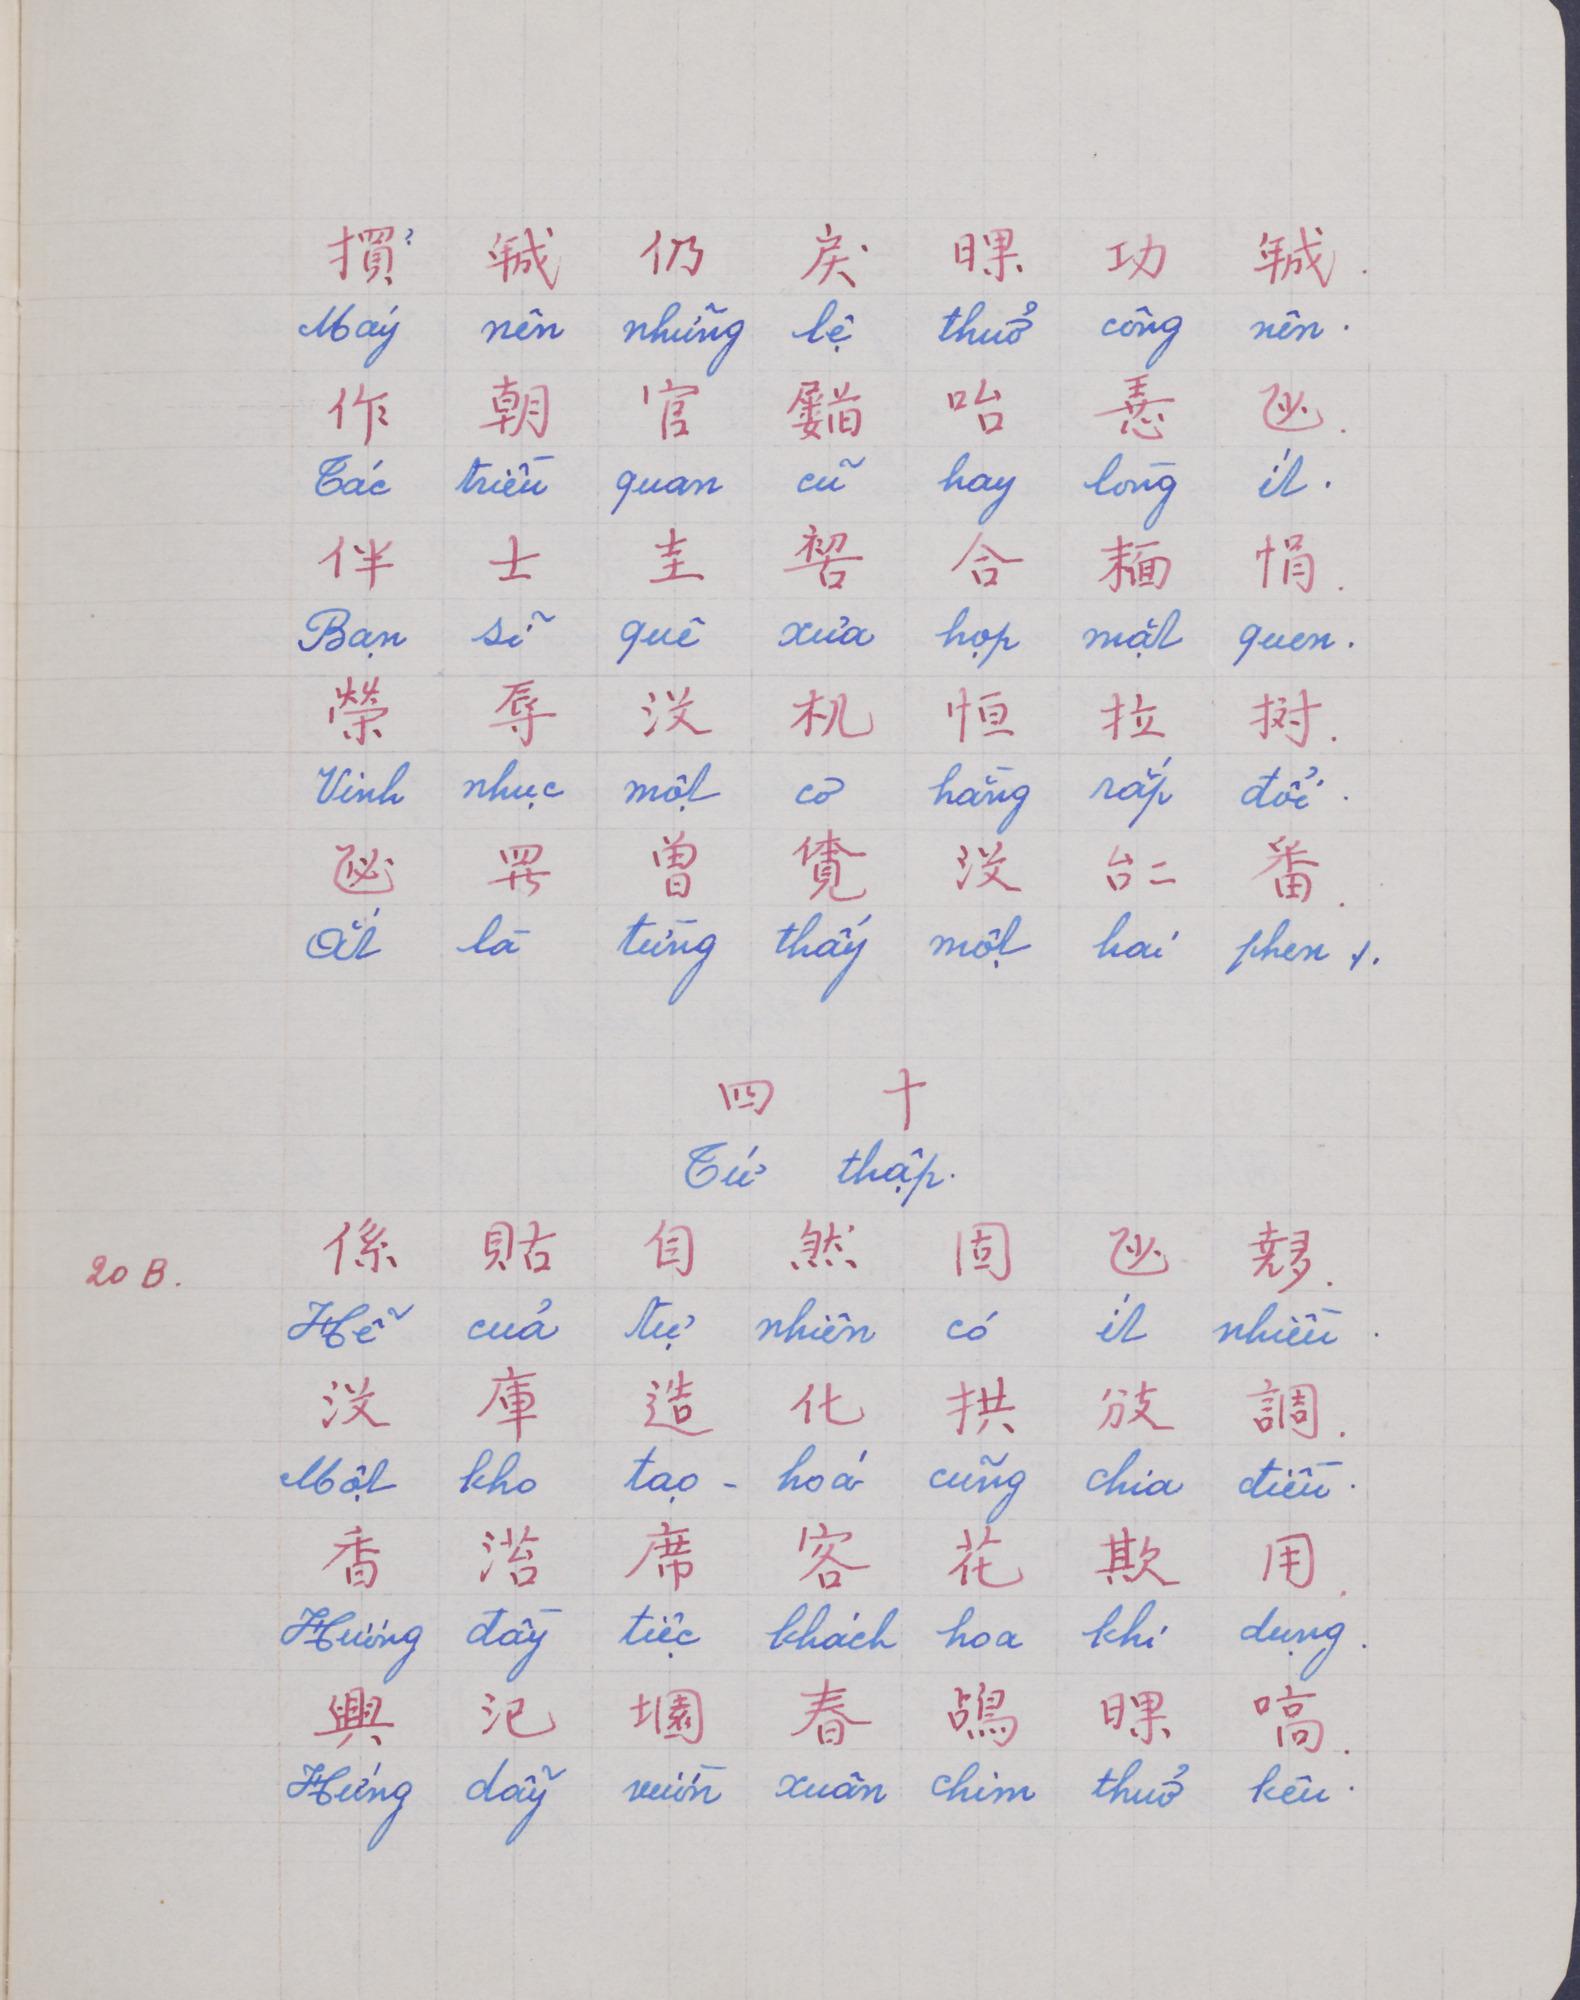 摜 𢧚 仍 戾 𣇞 功 𢧚.
Mấy nên những lệ thuở công nên.
作 朝 官 𡳰 咍 𢚸 𠃣.
Tác triều quan cũ hay lòng ít.
伴 士 圭 𠸗 合 𩈘 悁.
Bạn sĩ quê xưa họp mặt quen.
榮 辱 没 机 恒 拉 𢭰.
Vinh nhục một cơ hằng rắp đổi.
𠃣 𦋦 曾 覓 没 𠄩 番.
Ắt là từng thấy một hai phen.
四 十
Tứ thập.
20 B.
係 貼 自 然 固 𠃣 𡗉.
Hễ của tự nhiên có ít nhiều.
没 庫 造 化 拱 𢺺 調.
Một kho tạo - hoá cũng chia điều.
香 苔 席 客 花 欺 用.
Hương đầy tiệc khách hoa khi dụng.
興 氾 園 春 鴣 𣇞 嗃.
Hứng dẫy vườn xuân chim thuở kêu.